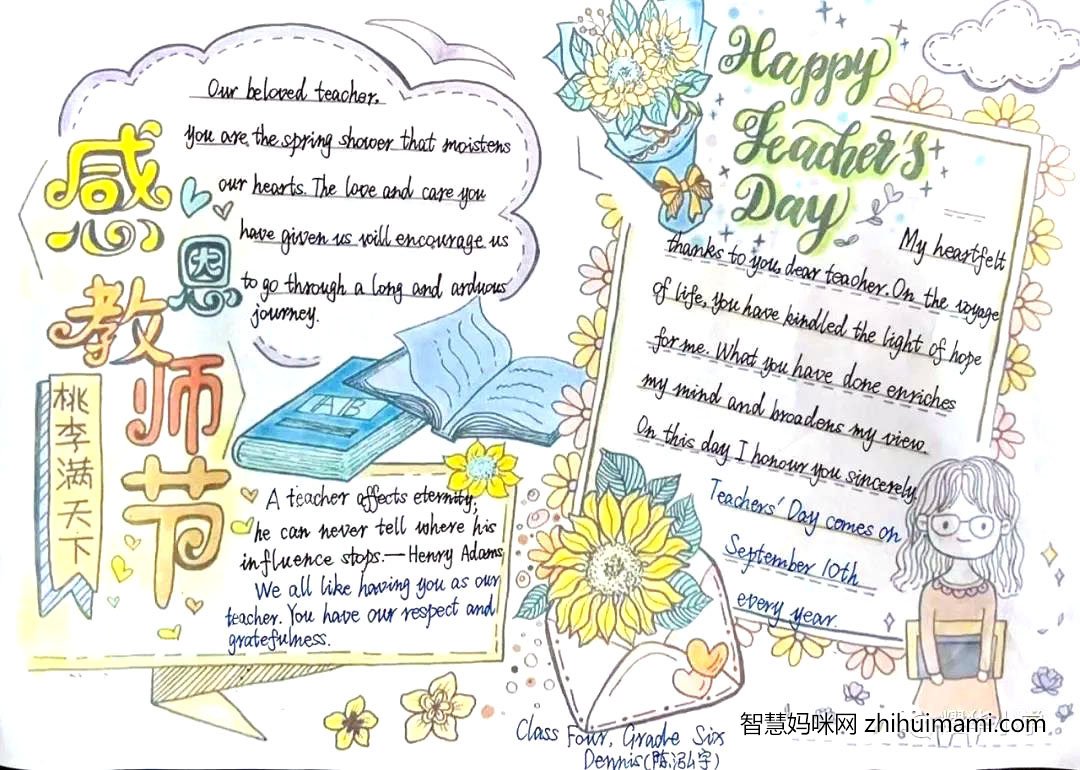 感
恩
教
师
节
桃李满天下
Our beloved teacher,
you are the spring shower that moistens
our hearts. The love and care you
have given us will encourage us
to go through a long and arduous
journey.
AB
A teacher affects eternity;
he can never tell where his
influence stops.—Henry Adams
We all like having you as our
teacher. You have our respect and
gratefulness.
Happy
Teacher's
Day
My heartfelt
thanks to you, dear teacher. On the voyage
of life, you have kindled the light of hope
for me. What you have done enriches
my mind and broadens my view.
On this day I honour you sincerely.
Teachers' Day comes on
September 10th
every year.
Class Four, Grade Six
Dennis(陈泓宇)
智慧妈咪网 zhihuimami.com